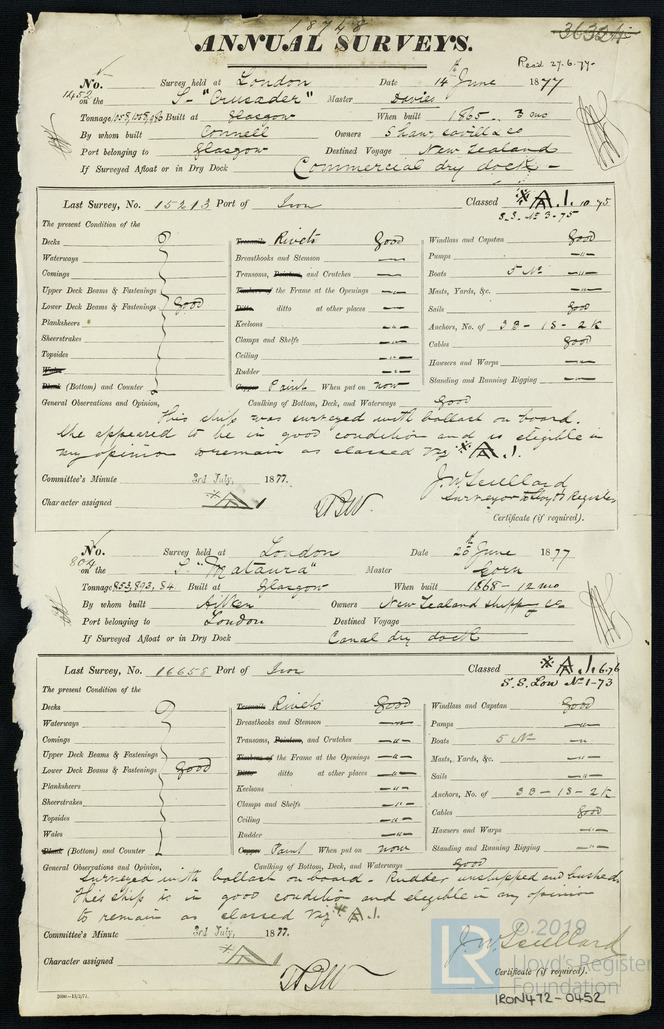 18748
36324
ANNUAL SURVEYS.
Read 27.6.77.
No. Survey held at London Date 14th June 1877
1452 on the S- "Crusader" Master Davies
Tonnage 1058,1058,986 Built at Glasgow When built 1865. 3 mo
By whom built Connell Owners Shaw, Savill & Co
Port belonging to Glasgow Destined Voyage New Zealand
If Surveyed Afloat or in Dry Dock Commercial dry dock -
Last Survey, No. 15213 Port of Iron Classed A.1. 10.75
S.S. No 3-75
The present Condition of the
Decks Treenails Rivets Good Windlass and Capstan Good
Waterways Breasthooks and Stemson Pumps
Comings Transoms, Pointers, and Crutches Boats 5 No
Upper Deck Beams & Fastenings Timbers of the Frame at the Openings Masts, Yards, &c.
Lower Deck Beams & Fastenings Good Ditto ditto at other places Sails Good
Planksheers Keelsons Anchors, No. of 3B-1S-2K
Sheerstrakes Clamps and Shelfs Cables Good
Topsides Ceiling Hawsers and Warps
Wales Rudder Standing and Running Rigging
Plank (Bottom) and Counter Copper Paint When put on now
General Observations and Opinion, Caulking of Bottom, Deck, and Waterways Good
This ship was surveyed with ballast on board.
She appeared to be in good condition and is eligible in
my opinion to remain as classed Viz A.1.
Committee's Minute 3rd July, 1877.
Character assigned A1
Surveyor to Lloyd's Register
Certificate (if required).
No. Survey held at London Date 20th June 1877
804 on the S. "Mataura" Master Corn
Tonnage 853,893,84 Built at Glasgow When built 1868-12 mo
By whom built Aitken Owners New Zealand Shippg Co
Port belonging to London Destined Voyage
If Surveyed Afloat or in Dry Dock Canal dry dock
Last Survey, No. 16658 Port of Iron Classed A.1. 6.76
S.S. Lon No 1-73
The present Condition of the
Decks Treenails Rivets Good Windlass and Capstan Good
Waterways Breasthooks and Stemson Pumps
Comings Transoms, Pointers, and Crutches Boats 5 No
Upper Deck Beams & Fastenings Timbers of the Frame at the Openings Masts, Yards, &c.
Lower Deck Beams & Fastenings Good Ditto ditto at other places Sails
Planksheers Keelsons Anchors, No. of 3B-1S-2K
Sheerstrakes Clamps and Shelfs Cables Good
Topsides Ceiling Hawsers and Warps
Wales Rudder Standing and Running Rigging
Plank (Bottom) and Counter Copper Paint When put on now
General Observations and Opinion, Caulking of Bottom, Deck, and Waterways Good
Surveyed with ballast on board - Rudder unshipped and bushed.
This ship is in good condition and eligible in my opinion
to remain as classed Viz A.1.
Committee's Minute 3rd July, 1877.
Character assigned A1
Certificate (if required).
© 2019
LR Lloyd's Register
Foundation
2000.-13/2/77.
IRON472-0452